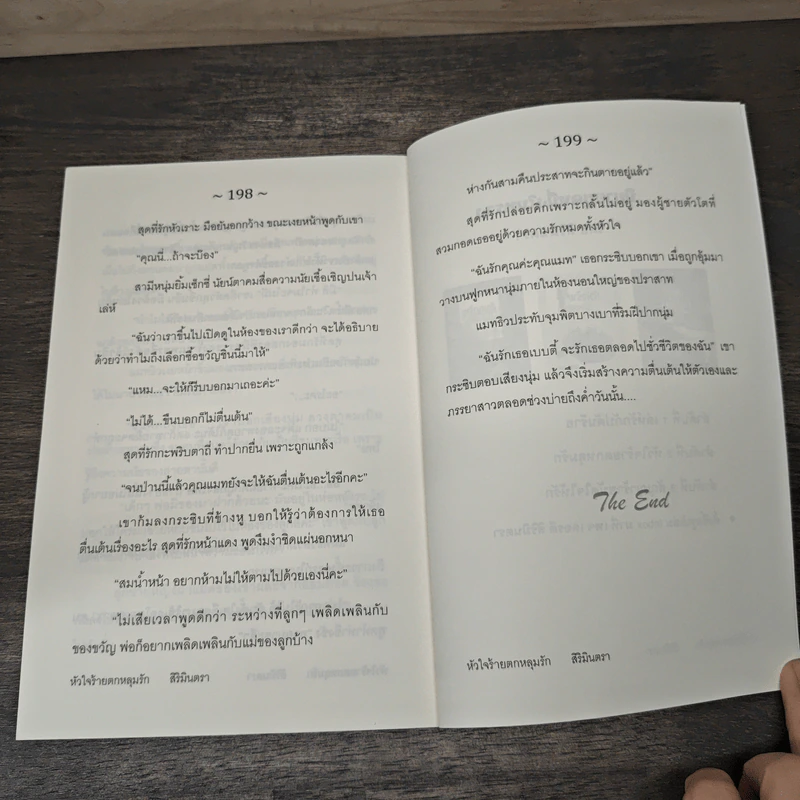 ~ 198 ~
สุดที่รักหัวเราะ มือยันอกกว้าง ขณะเงยหน้าพูดกับเขา
“คุณนี่...ถ้าจะบ๊อง”
สามีหนุ่มยิ้มเซ็กซี่ นัยน์ตาคมสื่อความนัยเชื้อเชิญปนเจ้า
เล่ห์
“ฉันว่าเราขึ้นไปเปิดดูในห้องของเราดีกว่า จะได้อธิบาย
ด้วยว่าทำไมถึงเลือกซื้อขวัญชิ้นนี้มาให้”
“แหม...จะให้ก็รีบบอกมาเถอะค่ะ”
“ไม่ได้...ขืนบอกก็ไม่ตื่นเต้น”
สุดที่รักกะพริบตาถี่ ทำปากยื่น เพราะถูกแกล้ง
“จนป่านนี้แล้วคุณแมทยังจะให้ฉันตื่นเต้นอะไรอีกคะ”
เขาก้มลงกระซิบที่ข้างหู บอกให้รู้ว่าต้องการให้เธอ
ตื่นเต้นเรื่องอะไร สุดที่รักหน้าแดง พูดงึมงำชิดแผ่นอกหนา
“สมน้ำหน้า อยากห้ามไม่ให้ตามไปด้วยเองนี่คะ”
“ไม่เสียเวลาพูดดีกว่า ระหว่างที่ลูกๆ เพลิดเพลินกับ
ของขวัญ พ่อก็อยากเพลิดเพลินกับแม่ของลูกบ้าง
หัวใจร้ายตกหลุมรัก สิริมินตรา
~ 199 ~
ห่างกันสามคืนประสาทจะกินตายอยู่แล้ว”
สุดที่รักปล่อยคิกเพราะกลั้นไม่อยู่ มองผู้ชายตัวโตที่
สวมกอดเธออยู่ด้วยความรักหมดทั้งหัวใจ
“ฉันรักคุณค่ะคุณแมท” เธอกระซิบบอกเขา เมื่อถูกอุ้มมา
วางบนฟูกหนานุ่มภายในห้องนอนใหญ่ของปราสาท
แมทธิวประทับจุมพิตบางเบาที่ริมฝีปากนุ่ม
“ฉันรักเธอเบบตี้ จะรักเธอตลอดไปชั่วชีวิตของฉัน” เขา
กระซิบตอบเสียงนุ่ม แล้วจึงเริ่มสร้างความตื่นเต้นให้ตัวเองและ
ภรรยาสาวตลอดช่วงบ่ายถึงค่ำวันนั้น....
The End
หัวใจร้ายตกหลุมรัก สิริมินตรา